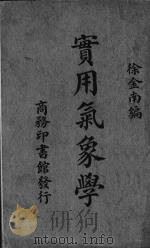 徐金南編
實用氣象學
商務印書館發行
mtoou.info